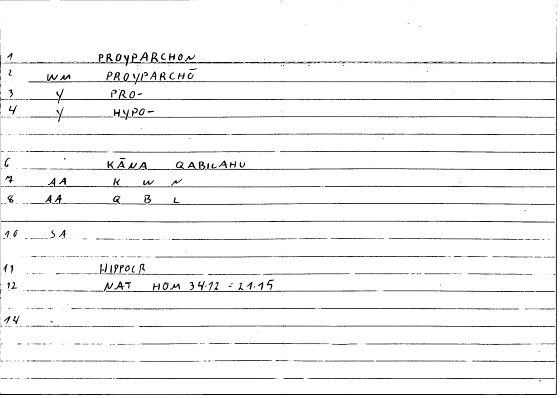 1 PROYPARCHON
2 WM PROYPARCHŌ
3 Y PRO-
4 Y HYPO-
6 KĀNA QABILAHU
7 AA K W N
8 AA Q B L
10 SA
11 HIPPOCR
12 NAT HOM 34.12 = 21.15
14